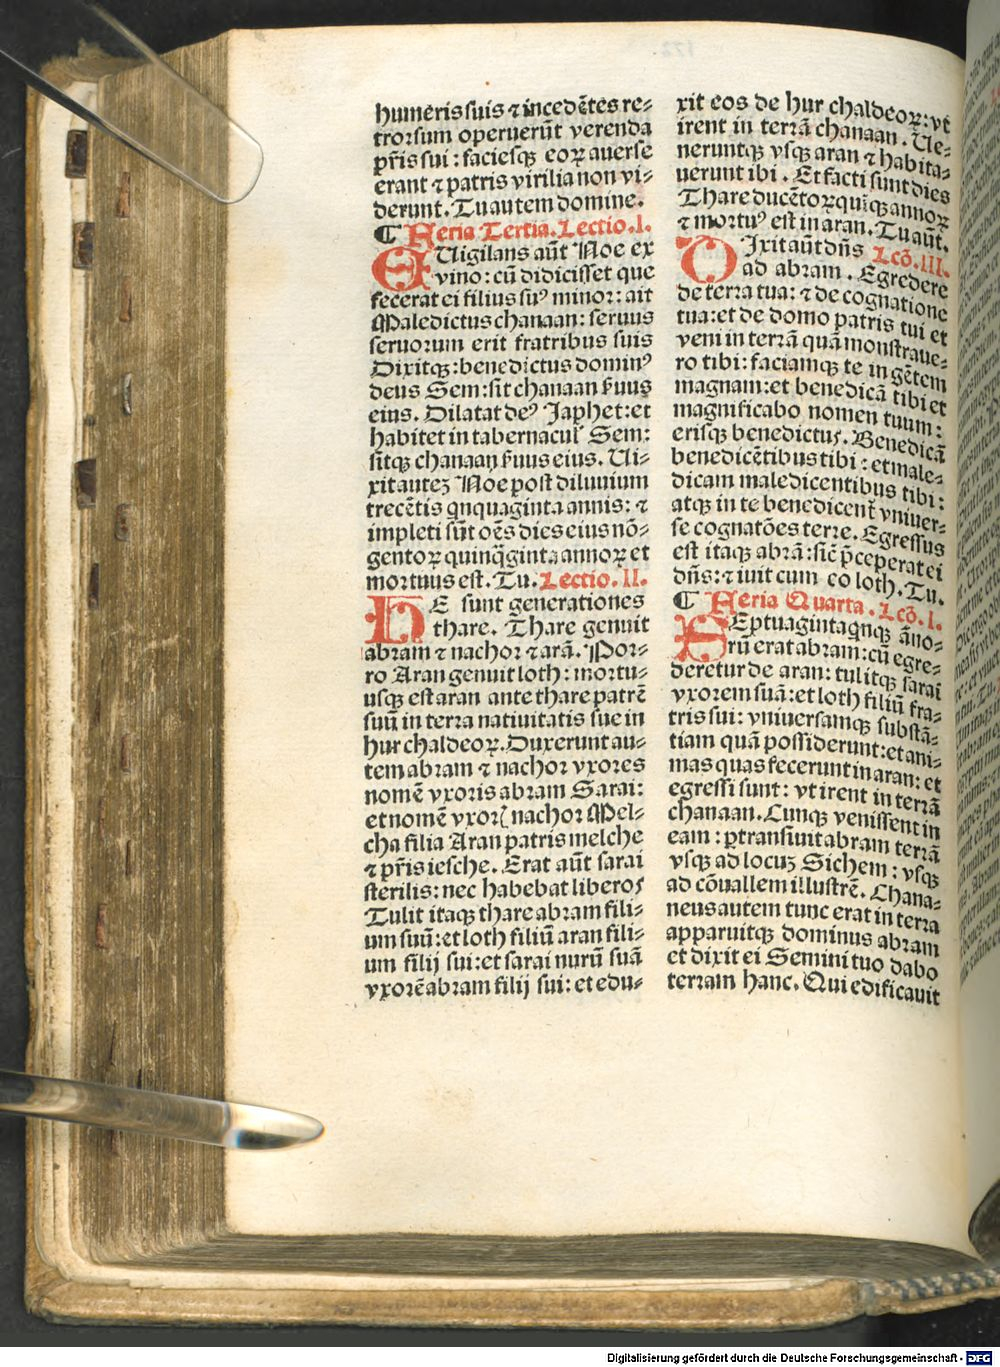 humeris suis ⁊ incedẽtes re⸗
trorsum operuerũt verenda
pr̃is sui : faciesqꝫ eoꝝ auerse
erant ⁊ patris virilia non vi⸗
derunt. Tu autem domine.
¶ Feria Tertia. Lectio. I.
EUigilans aũt Noe ex
vino: cũ didicisset que
fecerat ei filius suꝰ minor: ait
Maledictus chanaan: seruus
seruorum erit fratribus suis
Dixitqꝫ: benedictus dominꝰ
deus Sem: sit chanaan ẜuus
eius. Dilatat deꝰ Japhet: et
habitet in tabernacul' Sem:
sitqꝫ chanaan ẜuus eius. Ui⸗
xit autez Noe post diluuium
trecẽtis qnquaginta annis: ⁊
impleti sũt oẽs dies eius nõ⸗
gentoꝝ quinq̃ginta annoꝝ et
mortuus est. Tu. Lectio. II.
HE sunt generationes
thare. Thare genuit
abram ⁊ nachor ⁊ arã. Por⸗
ro Aran genuit loth: mortu⸗
usqꝫ est aran ante thare patrẽ
suũ in terra natiuitatis sue in
hur chaldeoꝝ. Duxerunt au⸗
tem abram ⁊ nachor vxores
nomẽ vxoris abram Sarai:
et nomẽ vxorꝭ nachor Mel⸗
cha filia Aran patris melche
⁊ pr̃is iesche. Erat aũt sarai
sterilis: nec habebat liberos
Tulit itaqꝫ thare abram fili⸗
um suũ: et loth filiũ aran fili⸗
um filij sui: et sarai nurũ suã
vxorẽ abram filij sui: et edu⸗
xit eos de hur chaldeoꝝ: vt
irent in terrã chanaan. Ue⸗
neruntqꝫ vsqꝫ aran ⁊ habita⸗
uerunt ibi. Et facti sunt dies
Thare ducẽtoꝝ quĩqꝫ annoꝝ
⁊ mortuꝰ est in aran. Tu aũt.
DIxit aũt dñs Lcõ. III.
ad abram. Egredere
de terra tua: ⁊ de cognatione
tua: et de domo patris tui et
veni in terrã quã monstraue⸗
ro tibi: faciamqꝫ te in gẽtem
magnam: et benedicã tibi et
magnificabo nomen tuum:
erisqꝫ benedictus. Benedicã
benedicẽtibus tibi: et male⸗
dicam maledicentibus tibi:
atqꝫ in te benedicent̃ vniuer⸗
se cognatões terre. Egressus
est itaqꝫ abrã: sic̃ p̃ceperat ei
dñs: ⁊ iuit cum eo loth. Tu.
¶ Feria Quarta. Lcõ. I.
SEptuaginta qnqꝫ ãno⸗
rũ erat abram: cũ egre⸗
deretur de aran: tulitqꝫ sarai
vxorem suã: et loth filiũ fra⸗
tris sui: vniuersamqꝫ substã⸗
tiam quã possiderunt: et ani⸗
mas quas fecerunt in aran: et
egressi sunt: vt irent in terrã
chanaan. Cunqꝫ venissent in
eam: ꝑtransiuit abram terrã
vsqꝫ ad locuꝫ Sichem: vsqꝫ
ad cõuallem illustrẽ. Chana⸗
neus autem tunc erat in terra
apparuitqꝫ dominus abram
et dixit ei Semini tuo dabo
terram hanc. Qui edificauit
Digitalisierung gefördert durch die Deutsche Forschungsgemeinschaft - DFG